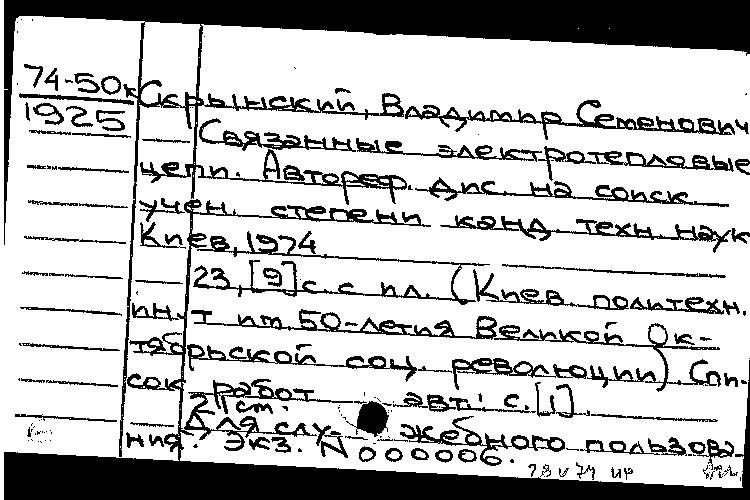 74-50к
1925
Скрынский, Владимир Семенович
Связанные электротепловые
цепи. Автореф. дис. на соиск.
учен. степени канд. техн. наук
Киев, 1974.
23, [9] с. с ил. (Киев. политехн.
ин-т им. 50-летия Великой Ок-
тябрьской соц. революции). Спи-
сок работ авт.: с. [1].
21 ст.
Для служебного пользова-
ния. Экз. N 000006.